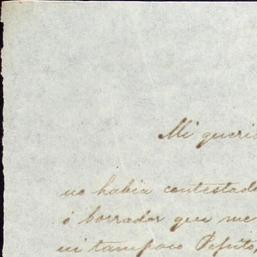 Mi queri
no habia contestado
ó borrador que me
ni tampoco Pepito,